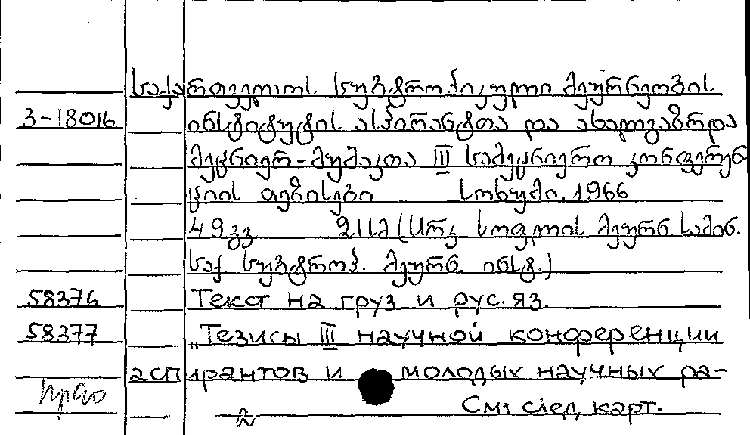 საქართველოს სუბტროპიკული მეურნეობის
3-18016 ინსტიტუტის ასპირანტთა და ახალგაზრდა
მეცნიერ-მუშაკთა III სამეცნიერო კონფერენ
ციის თეზისები სოხუმი. 1966
49გვ სსრკ სოფლის მეურნ. სამინ.
საქ. სუბტროპ. მეურნ. ინსტ.)
58376 Текст на груз и рус. яз.
58377 „Тезисы III научной конференции
аспирантов и молодых научных ра-
См: след. карт.